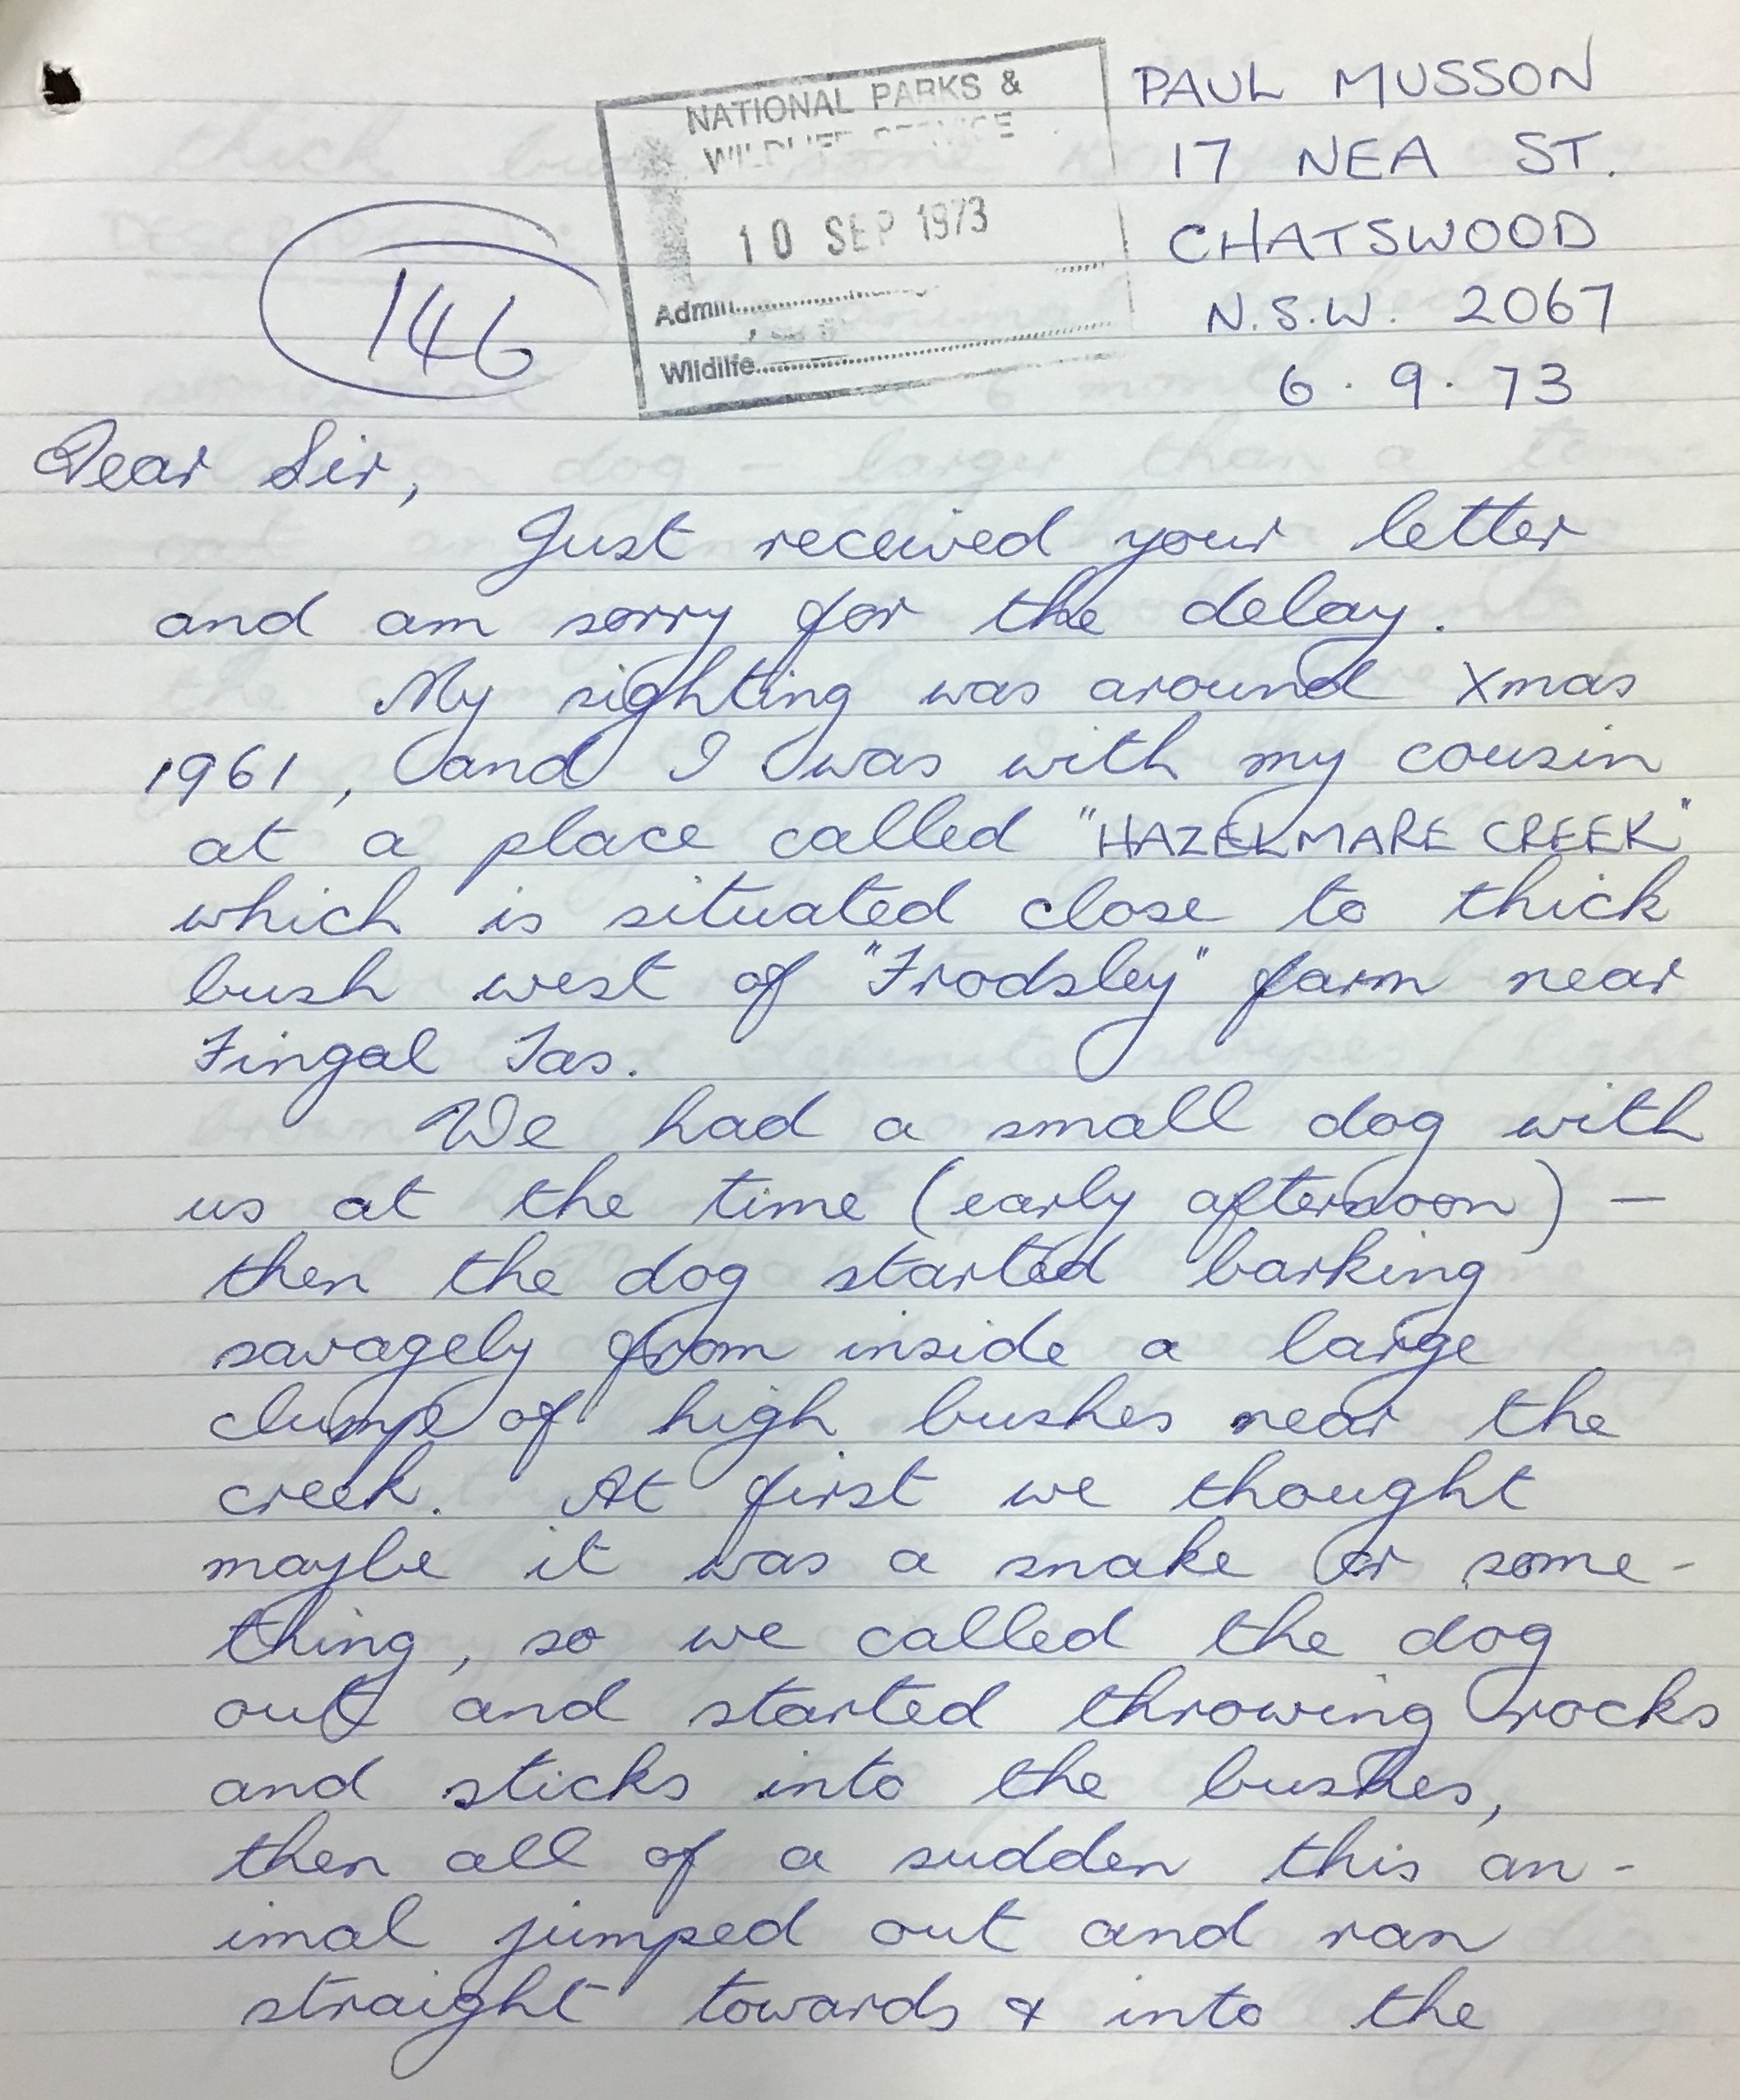 NATIONAL PARKS &
WILDLIFE SERVICE
10 SEP 1973
Admin
Wildlife
146
PAUL MUSSON
17 NEA ST.
CHATSWOOD
N.S.W. 2067
6.9.73
Dear Sir,
Just received your letter
and am sorry for the delay.
My sighting was around Xmas
1961, and I was with my cousin
at a place called "HAZELMARE CREEK"
which is situated close to thick
bush west of "Frodsley" farm near
Fingal Tas.
We had a small dog with
us at the time (early afternoon) —
then the dog started barking
savagely from inside a large
clump of high bushes near the
creek. At first we thought
maybe it was a snake or some-
thing, so we called the dog
out and started throwing rocks
and sticks into the bushes,
then all of a sudden this an-
imal jumped out and ran
straight towards & into the